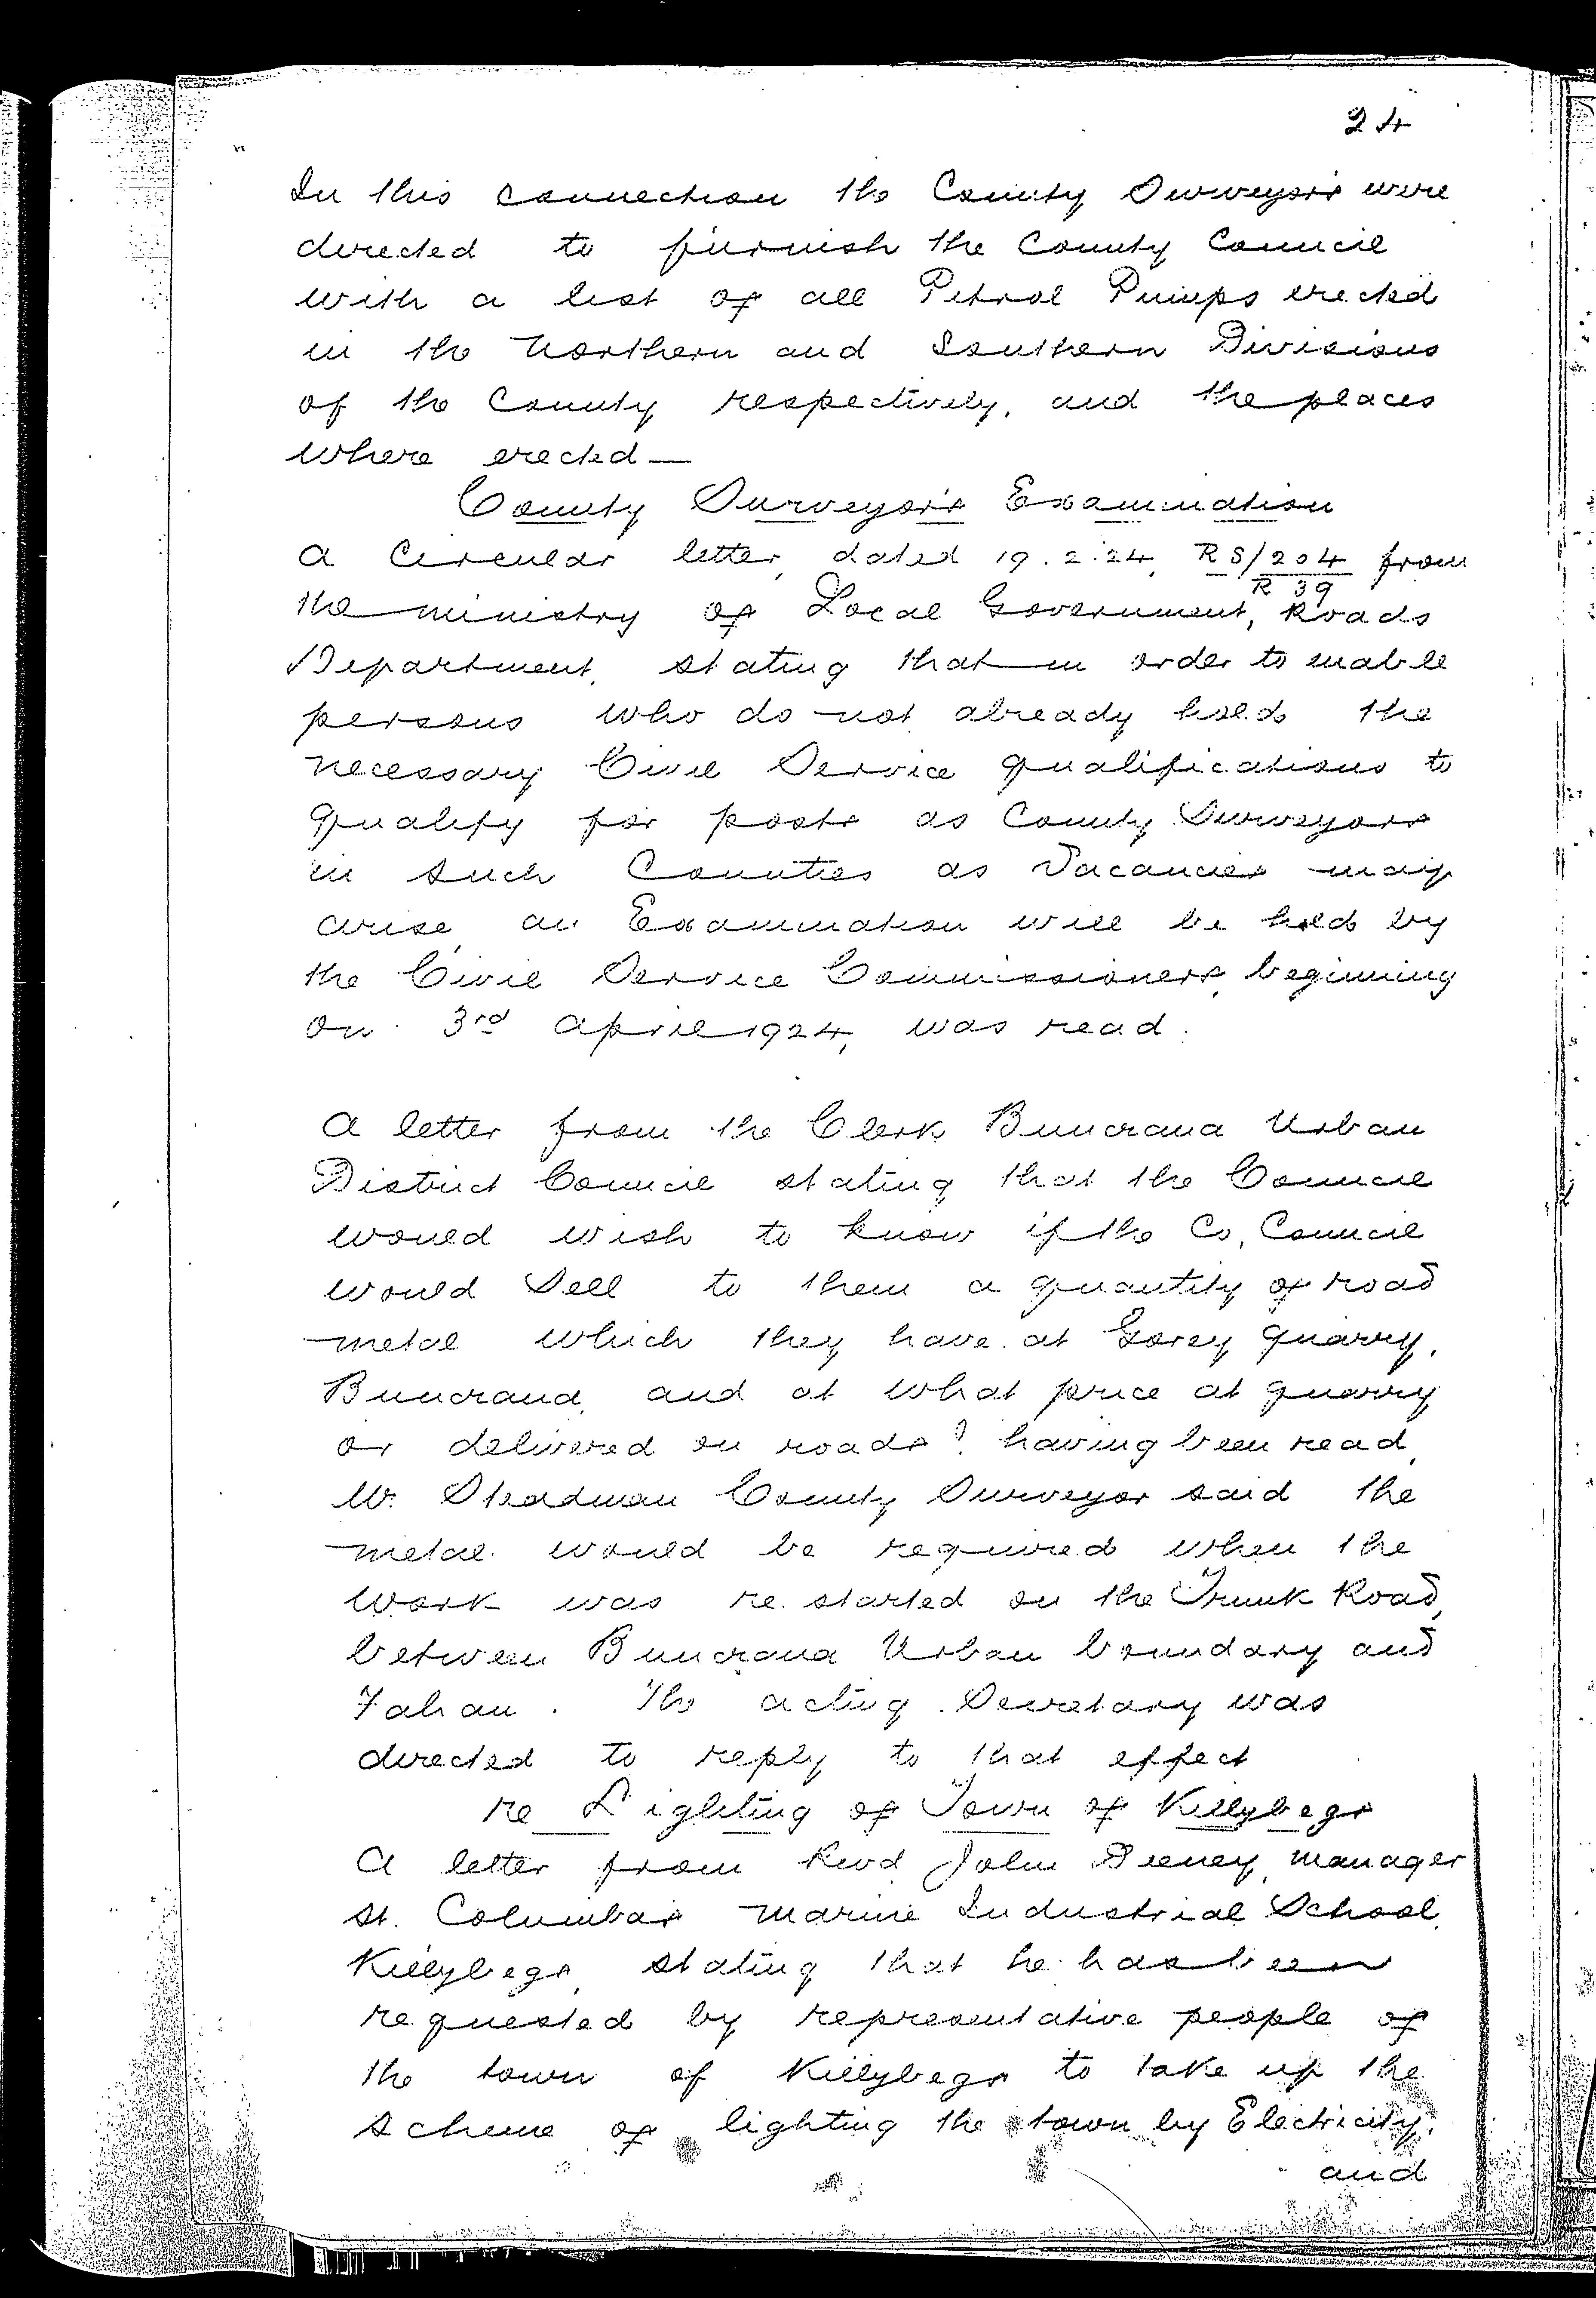 24
In this connection the County Surveyors were
directed to furnish the County Council
with a list of all Petrol Pumps erected
in the Northern and Southern Divisions
of the County respectively, and the places
where erected —
County Surveyors Examination
A Circular letter, dated 19.2.24, RS/204/R 39 from
the ministry of Local Government, Roads
Department, stating that in order to enable
persons who do not already hold the
necessary Civil Service qualifications to
qualify for posts as County Surveyors
in such Counties as Vacancies may
arise, an Examination will be held by
the Civil Service Commissioners, beginning
on 3rd April 1924, was read.
A letter from the Clerk Buncrana Urban
District Council stating that the Council
would wish to know if the Co, Council
would sell to them a quantity of road
metal which they have at Gorey quarry,
Buncrana, and at what price at quarry
or delivered on roads? having been read,
Mr. Steadman County Surveyor said the
metal would be required when the
work was re-started on the Trunk Road,
between Buncrana Urban boundary and
Fahan. The acting Secretary was
directed to reply to that effect
re Lighting of Town of Killybegs
A letter from Revd John Deeney, manager
St. Columbas marine Industrial School,
Killybegs, stating that he has been
requested by representative people of
the town of Killybegs to take up the
scheme of lighting the town by Electricity,
and